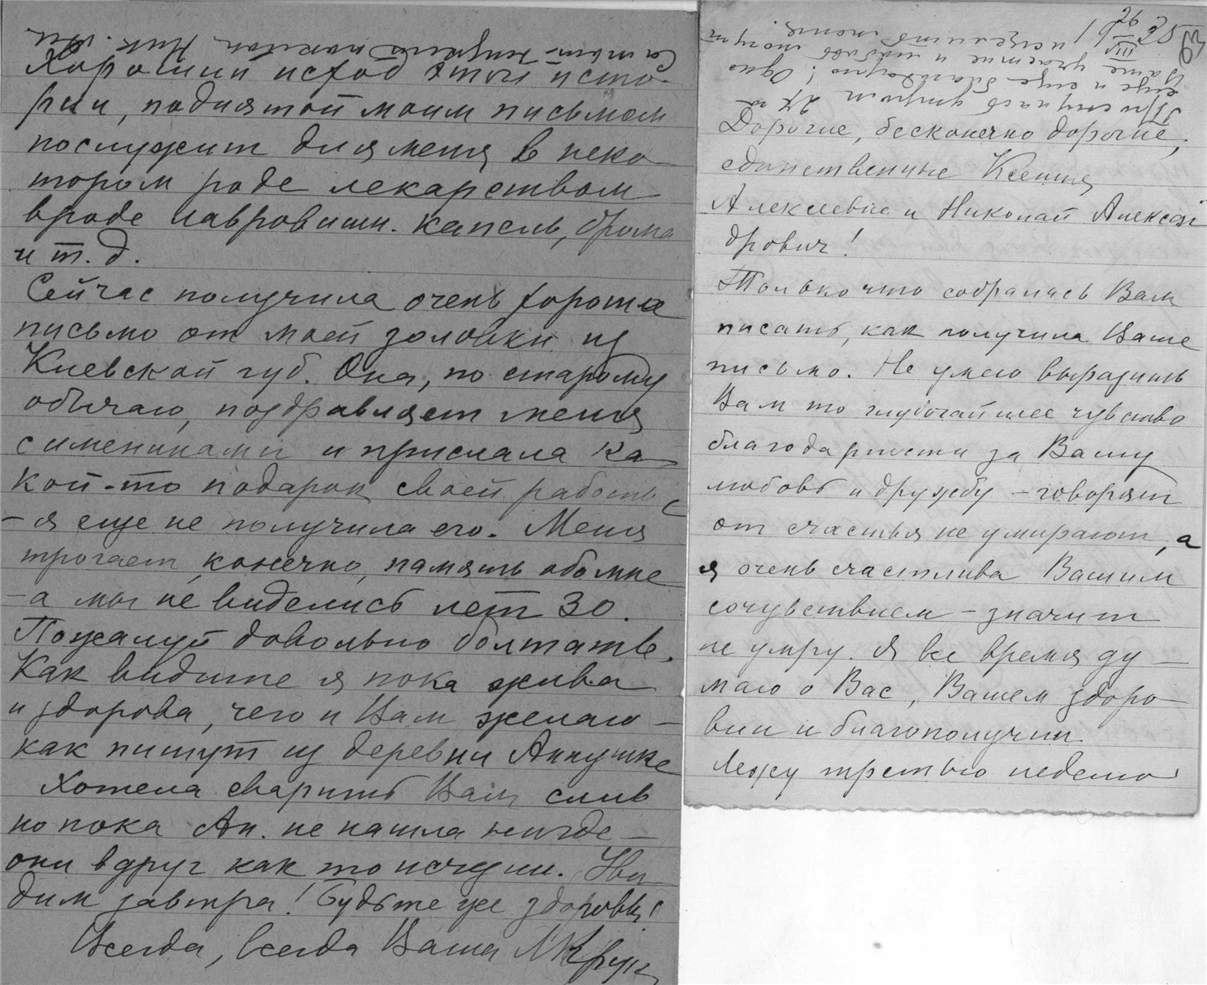 Хороший исход этой исто-
рии, поднятой моим письмом
послужит для меня в неко-
тором роде лекарством
вроде лавровишн. капель, брома
и т. д.
Сейчас получила очень хорошее
письмо от моей золовки из
Киевской губ. Она, по старому
обычаю, поздравляет меня
с именинами и прислала ка-
кой-то подарок своей работы
– я еще не получила его. Меня
трогает, конечно, память обо мне
– а мы не виделись лет 30.
Пожалуй довольно болтать.
Как видите я пока жива
и здорова, чего и Вам желаю –
как пишут из деревни Аннушке
Хотела сварить Вам слив
но пока Ан. не нашла нигде –
они вдруг как то исчезли. Уви-
дим завтра! Будьте же здоровы!
Всегда, всегда Ваша
26
VIII
19 35
63
Дорогие, бесконечно дорогие,
единственные Ксения
Алексеевна и Николай Алексан
дрович!
Только что собралась Вам
писать, как получила Ваше
письмо. Не умею выразить
Вам то глубочайшее чувство
благодарности за Вашу
любовь и дружбу – говорят
от счастья не умирают, а
я очень счастлива Вашим
сочувствием – значит
не умру. Я все время ду-
маю о Вас, Вашем здоро-
вии и благополучии.
Лежу третью неделю